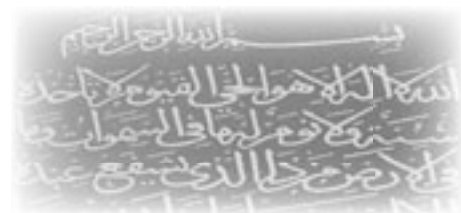 بسم الله الرحمن الرحيم
الله لا اله الا هو الحي القيوم لا تاخذه
سنة ولا نوم له ما في السموات وما
في الارض من ذا الذي يشفع عنده